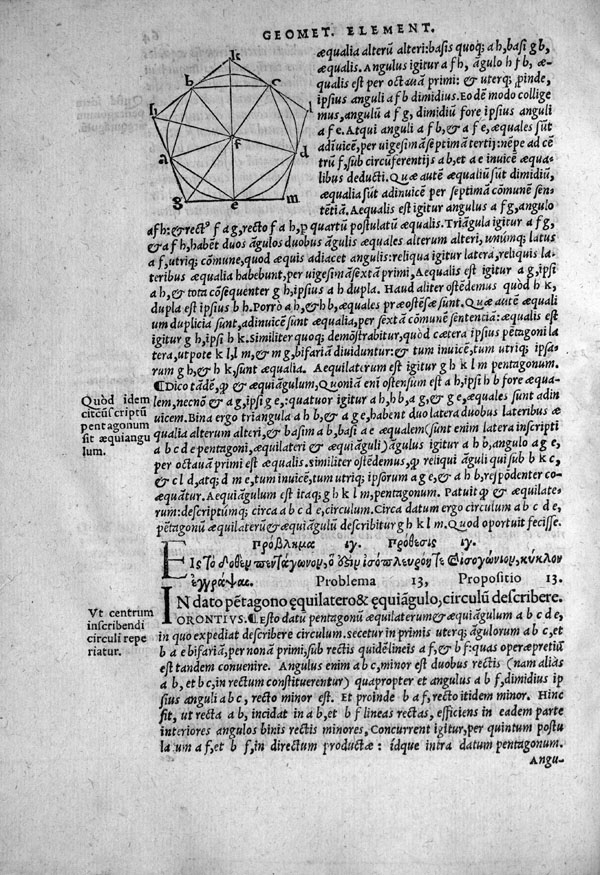 GEOMET. ELEMENT.
k
b
c
h
l
f
a
d
g
e
m
æqualia alterū alteri: basis quoq; a h, basi g b,
æqualis. Angulus igitur a f h, āgulo h f b, æ-
qualis est per octauā primi: & uterq; ꝓinde,
ipsius anguli a f b dimidius. Eodē modo collige
mus, angulū a f g, dimidiū fore ipsius anguli
a f e. Atqui anguli a f b, & a f e, æquales sūt
adinuicē, per uigesimāseptimā tertij: nēpe ad cē
trū f, sub circūferentijs a b, et a e inuicē æqua-
libus deducti. Quæ autē æqualiū sūt dimidiū,
æqualia sūt adinuicē per septimā cōmunē sen-
tētiā. Aequalis est igitur angulus a f g, angulo
a f h: & rectꝰ f a g, recto f a h, ꝑ quartū postulatū æqualis. Triāgula igitur a f g,
& a f h, habēt duos āgulos duobus āgulis æquales alterum alteri, unūmq; latus
a f, utriq; cōmune, quod æquis adiacet angulis: reliqua igitur latera, reliquis la-
teribus æqualia habebunt, per uigesimāsextā primi, Aequalis est igitur a g, ipsi
a h, & tota cōsequenter g h, ipsius a h dupla. Haud aliter ostēdemus quòd h k,
dupla est ipsius b h. Porrò a h, & h b, æquales præostēsæ sunt. Quæ autē æquali
um duplicia sunt, adinuicē sunt æqualia, per sextā cōmunē sentenciā: æqualis est
igitur g h, ipsi h k. Similiter quoq; demōstrabitur, quòd cætera ipsius pētagoni la
tera, utpote k l, l m, & m g, bifariā diuiduntur: & tum inuicē, tum utriq; ipsa-
rum g h, & h k, sunt æqualia. Aequilaterum est igitur g h k l m pentagonum.
¶ Dico tādē, ꝙ & æquiāgulum, Quoniā eni ostensum est a h, ipsi h b fore æqua-
Quòd idem
circūscriptū
pentagonum
sit æquiangu
lum.
lem, necnō & a g, ipsi g e,: quatuor igitur a h, h b, a g, & g e, æquales sunt adin
uicem. Bina ergo triangula a h b, & a g e, habent duo latera duobus lateribus æ
qualia alterum alteri, & basim a b, basi a e æqualem (sunt enim latera inscripti
a b c d e pentagoni, æquilateri & æquiāguli) āgulus igitur a h b, angulo a g e,
per octauā primi est æqualis. similiter ostēdemus, ꝙ reliqui āguli qui sub b k c,
& c l d, atq; d m e, tum inuicē, tum utriq; ipsorum a g e, & a h b, respōdenter co-
æquātur. Aequiāgulum est itaq; g h k l m, pentagonum. Patuit ꝙ & æquilate-
rum: descriptūmq; circa a b c d e, circulum. Circa datum ergo circulum a b c d e,
pētagonū æquilaterū & æquiāgulū describitur g h k l m. Quod oportuit fecisse.
Πρόβλημα ιγ. Πρόθεσις ιγ.
Εἰς τὸ δοθὲν πεντάγωνον, ὅ ὅξιν ἰσόπλευρόν τε ϗ ἰσογώνιον, κύκλον
ἐγγράψαι. Problema 13, Propositio 13.
IN dato pētagono ęquilatero & ęquiāgulo, circulū describere.
Vt centrum
inscribendi
circuli repe
riatur.
ORONTIVS. ¶ Esto datū pentagonū æquilaterum & æquiangulum a b c d e,
in quo expediat describere circulum. secetur in primis uterq; āgulorum a b c, et
b a e bifariā, per nonā primi, sub rectis quidē lineis a f, & b f: quas operæpretiū
est tandem conuenire. Angulus enim a b c, minor est duobus rectis (nam alias
a b, et b c, in rectum constituerentur) quapropter et angulus a b f, dimidius ip
sius anguli a b c, recto minor est. Et proinde b a f, recto itidem minor. Hinc
fit, ut recta a b, incidat in a b, et b f lineas rectas, efficiens in eadem parte
interiores angulos binis rectis minores, Concurrent igitur, per quintum postu
la um a f, et b f, in directum productæ: idque intra datum pentagonum.
Angu-